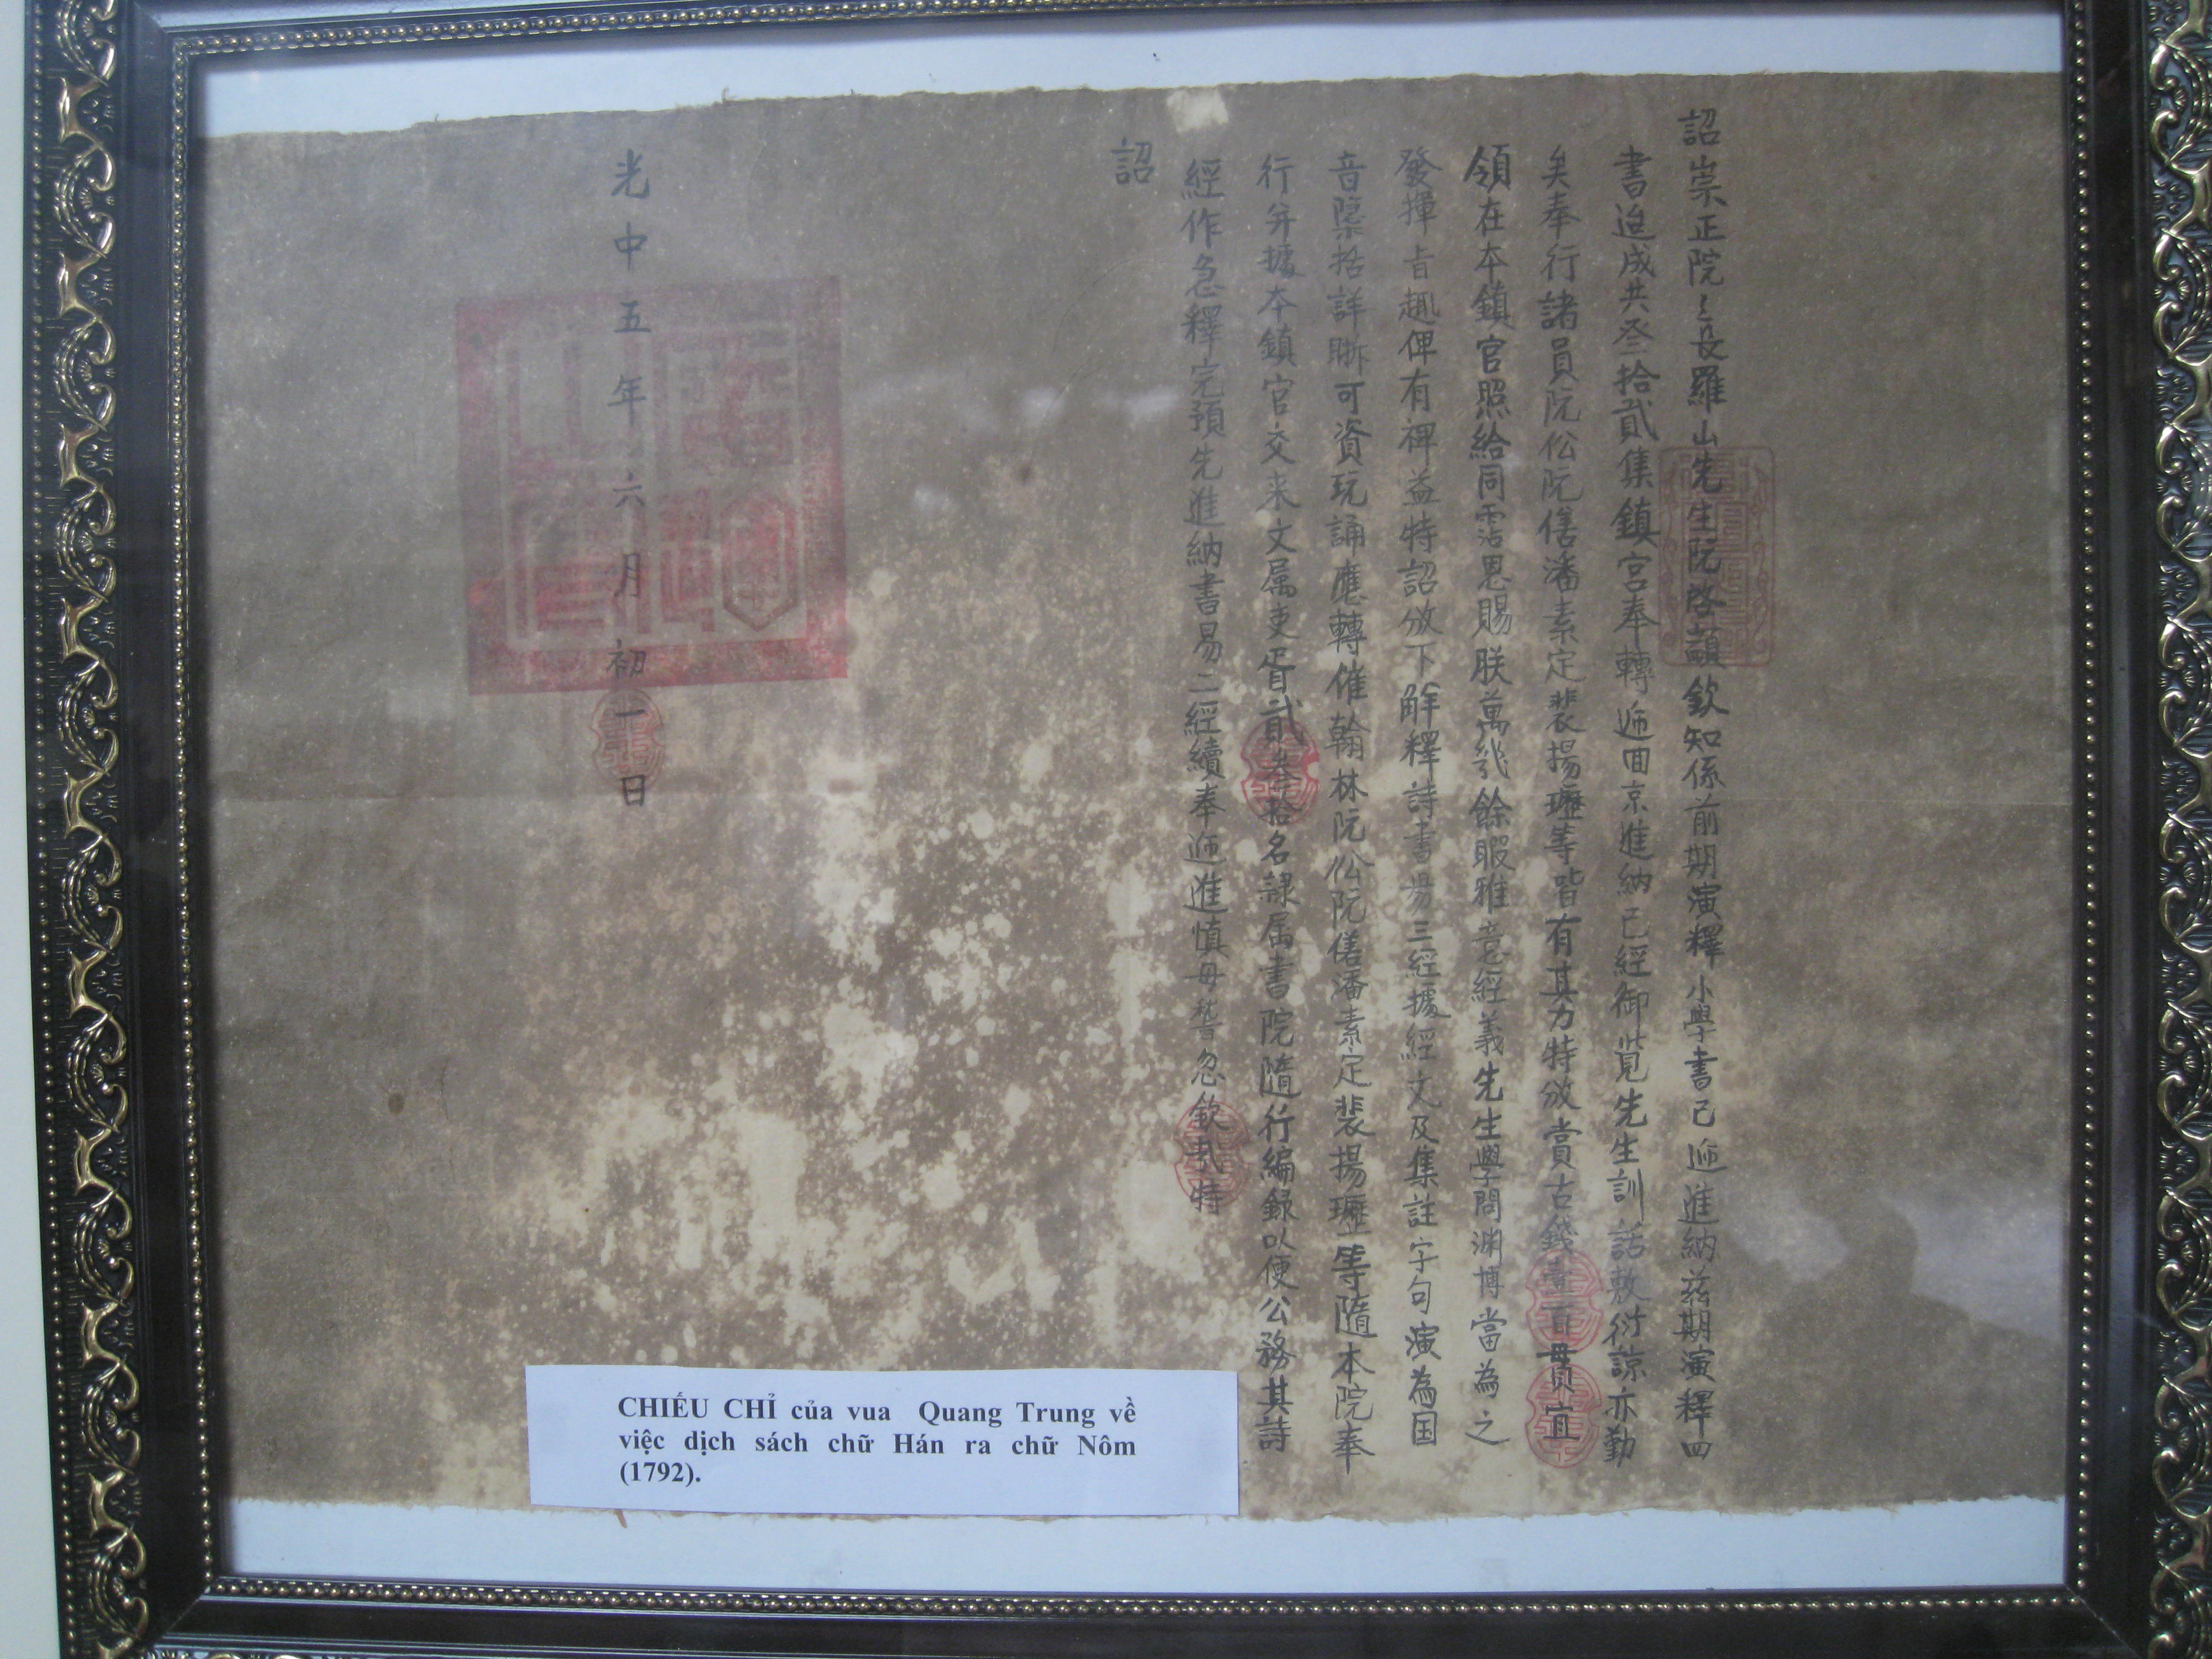 詔崇正院〻長羅山先生阮啓顓欽知係前期演釋小學書已遞進納茲期演釋四
書迨成共叁拾貳集鎮官奉轉遞回京進納已經御覧先生訓話敷衍諒亦勤
矣奉行諸員阮公阮僐潘素定裴揚瓑等皆有其力特放賞古錢壹百貫宜
領在本鎮官照給同霑恩賜朕萬幾餘暇雅意經義先生學問渊博當為之
發揮旨趣俾有裨益特詔放下解釋詩書易三經據經文及集註字句演為国
音檃括詳晣可資玩誦應轉催翰林阮公阮僐潘素定裴揚瓑等隨本院奉
行并據本鎮官交来文属吏胥貳叁拾名隷属書院隨行編錄以便公務其詩
經作急釋完預先進納書易二經續奉遞進慎毋暬忽欽哉特
詔
光中五年六月初一日
CHIẾU CHỈ của vua Quang Trung về
việc dịch sách chữ Hán ra chữ Nôm
(1792).